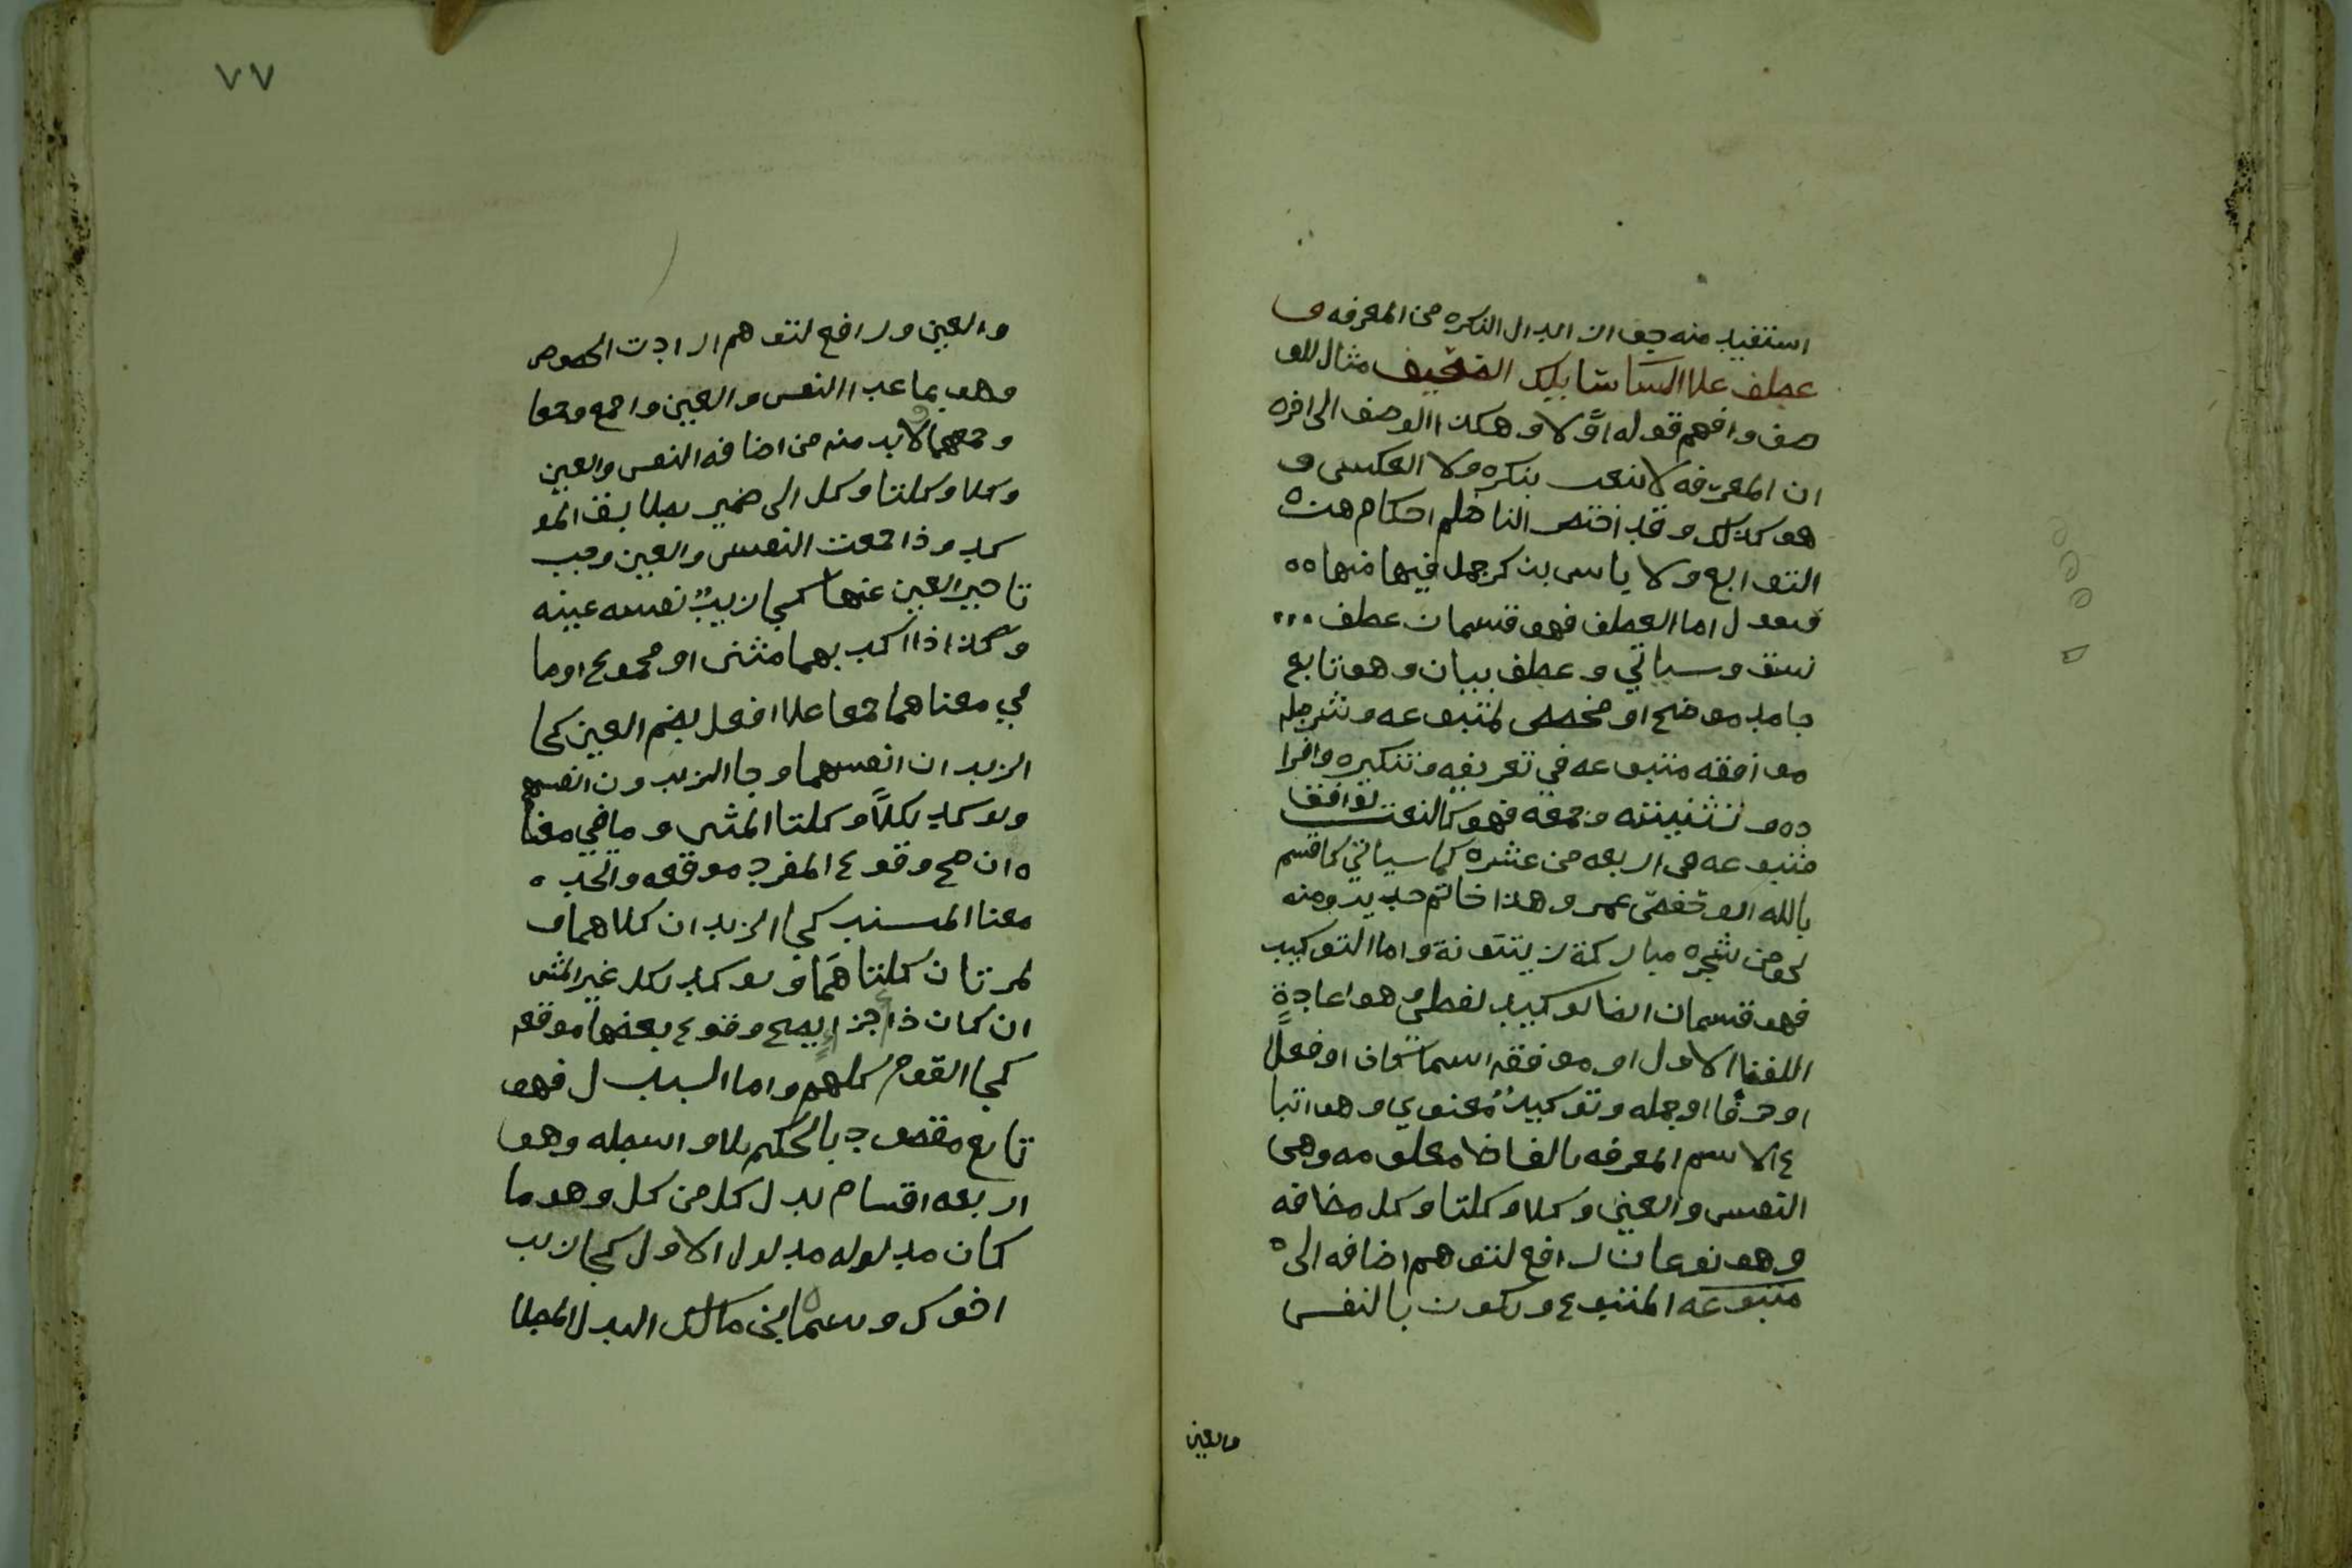 استفيد منه جواز ابدال النكره من المعرفه و
عطف علا السا سابلك الضعيف مثال للو
صف وافهم قوله اوّلا وهكذا الوصف الى اخره
ان المعرفه لا تنعت بنكره ولا العكس و
هو كذلك وقد اختصر الناظم احكام هذه
التوابع ولا باس بذكر جمل فيها منها ٥٥
فنقول اما العطف فهو قسمان عطف ...
نسق وسياتي وعطف بيان وهو تابع
جامد موضح او مخصص لمتبوعه وشرطه
موافقه متبوعه في تعريفه وتنكيره وافرا
ده وتثنيته وجمعه فهو كالنعت توافق
متبوعه في اربعه من عشره كما سياتي كاقسم
بالله ابو حفص عمر وهذا خاتم حديد ومنه
نحو من شجره مباركة زيتونة واما التوكيد
فهو قسمان ايضا توكيد لفظي وهو اعادة
اللفظ الاول او موافقه اسما كان او فعلًا
او حرفا او جمله وتوكيدٌ معنوي وهو اتبا
ع الاسم المعرفه بالفاظ معلومه وهي
النفس والعين وكلا وكلتا وكل مضافه
وهو نوعان رافع لتوهم اضافه الى
متبوعه المتبوع ويكون بالنفس
والعين
٧٧
والعين ورافع لتوهم ارادت الخصوص
وهو بما عدا النفس والعين واجمع وجمعا
وجمعهما ولابد منه من اضافه النفس والعين
وكلا وكلتا وكل الى ضمير يطابق المو
كد وذا جمعت النفس والعين وجب
تاخير العين عنها كجا زيدٌ نفسه عينه
وكذا اذا اكد بهما مثنى او مجموع او ما
في معناهما جمعا علا افعل بضم العين كجا
الزيدان انفسهما وجا الزيدون انفسهم
ويوكد بكلا وكلتا المثنى وما في معنا
ه ان صح وقوع المفرد موقعه واتحد ٥
معنا المسند كجا الزيدان كلاهما و
لمرتان كلتاهما ويوكد بكل غير المثنى
ان كان ذا جزا يصح وقوع بعضها موقعه
كجا القوم كلهم واما البدل فهو
تابع مقصود بالحكم بلا واسطه وهو
اربعه اقسام بدل كل من كل وهو ما
كان مدلوله مدلول الاول كجا زيد
اخوك وسماه ابن مالك البدل المطا